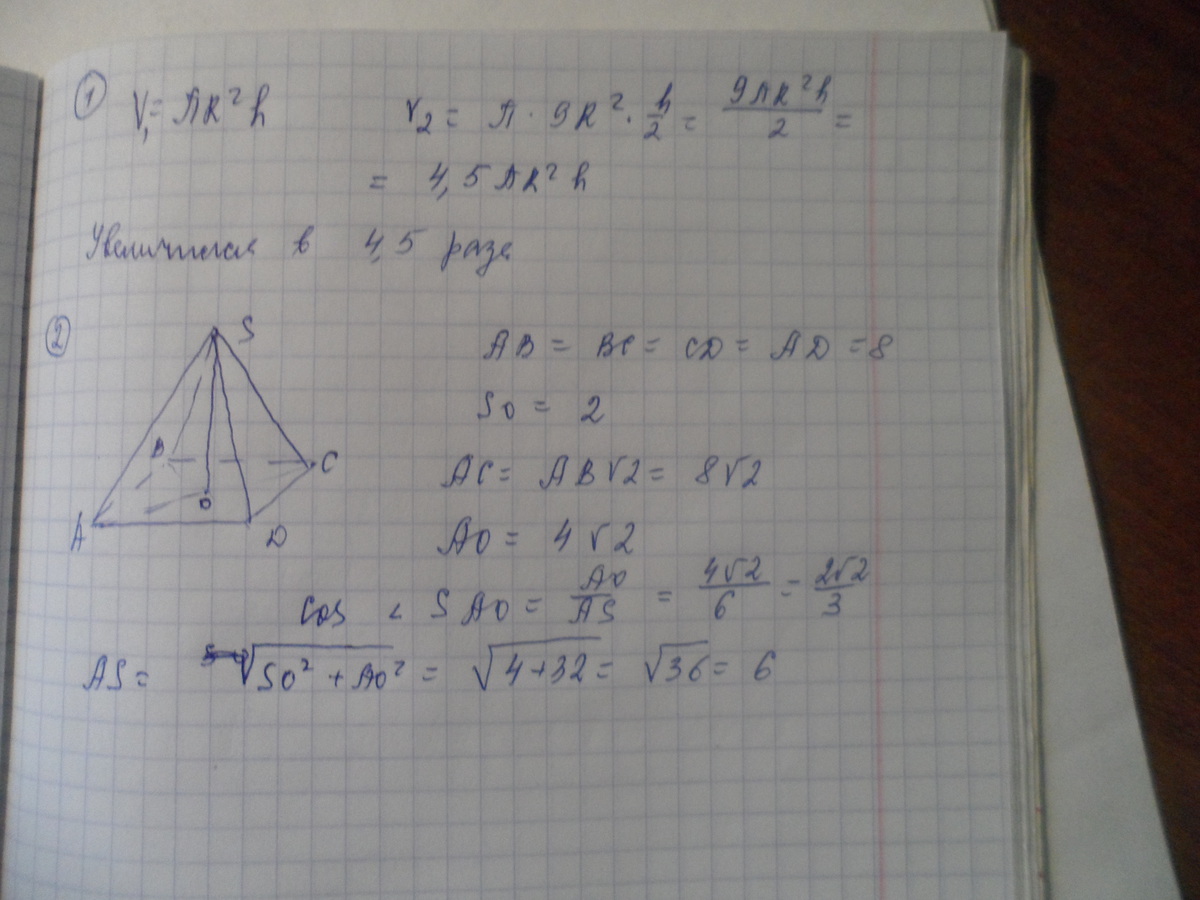 ① V₁ = πR²h V₂ = π · 9R² · h/2 = 9πR²h/2 =
= 4,5πR²h
Увеличится в 4,5 раза
②
S
B
C
O
A
D
AB = BC = CD = AD = 8
SO = 2
AC = AB√2 = 8√2
AO = 4√2
cos ∠ SAO = AO/AS = 4√2/6 = 2√2/3
AS = √SO² + AO² = √4+32 = √36 = 6